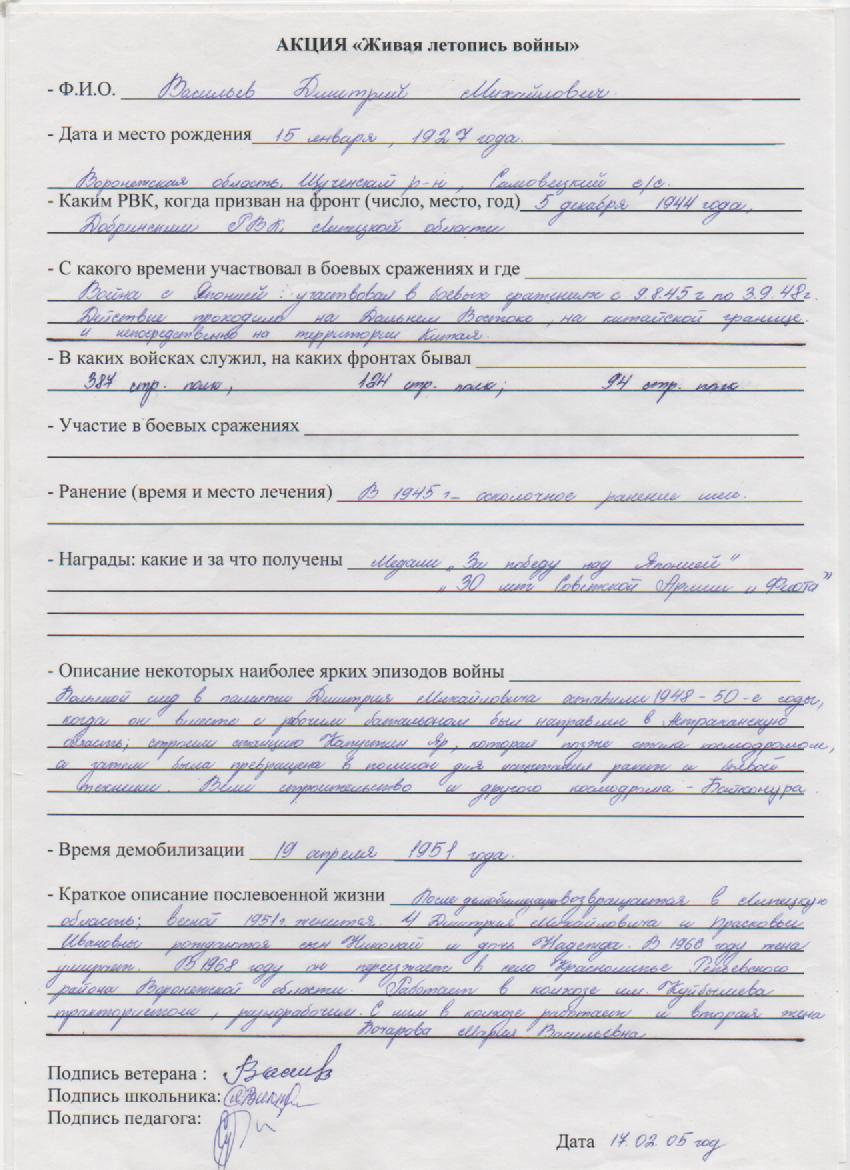 АКЦИЯ «Живая летопись войны»
- Ф.И.О. Васильев Дмитрий Михайлович.
- Дата и место рождения 15 января, 1927 года.
Воронежская область, Щученский р-н, Самовецкий с/с.
- Каким РВК, когда призван на фронт (число, место, год) 5 декабря 1944 года,
Добринским РВК, Липецкой области
- С какого времени участвовал в боевых сражениях и где
Война с Японией: участвовал в боевых сражениях с 9.8.45 г по 3.9.48 г.
Действие проходило на Дальнем Востоке, на китайской границе.
и непосредственно на территории Китая.
- В каких войсках служил, на каких фронтах бывал
387 стр. полк, 124 стр. полк; 94 стр. полк
- Участие в боевых сражениях
- Ранение (время и место лечения) В 1945 г - осколочное ранение шеи.
- Награды: какие и за что получены Медали „За победу над Японией"
„30 лет Советской Армии и Флота"
- Описание некоторых наиболее ярких эпизодов войны
Большой след в памяти Дмитрия Михайловича оставили 1948 - 50-е годы,
когда он вместе с рабочим батальоном был направлен в Астраханскую
область; строили станцию Капустин Яр, которая позже стала космодромом,
а затем была превращена в полигон для испытания ракет и боевой
техники. Вели строительство и другого космодрома - Байконура.
- Время демобилизации 19 апреля 1951 года.
- Краткое описание послевоенной жизни После демобилизации возвращается в Липецкую
область; весной 1951г. женится. У Дмитрия Михайловича и Прасковьи
Ивановны рождаются сын Николай и дочь Надежда. В 1966 году жена
умирает. В 1968 году он переезжает в село Краснолипье Репьевского
района Воронежской области. Работает в колхозе им. Куйбышева
трактористом, разнорабочим. С ним в колхозе работает и вторая жена
Бочарова Мария Васильевна
Подпись ветерана : Васив
Подпись школьника:
Подпись педагога:
Дата 17.02.05 год